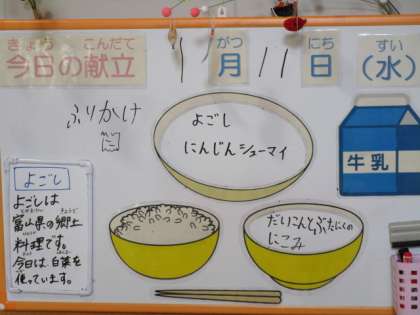 きょう こんだて がつ にち すい
今日の献立 1月11日(水)
ふりかけ
よごし
にんじんシューマイ
牛乳
よごし
よごしは
富山県の郷土
料理です。
今日は白菜を
使っています。
だいこんとぶたにくの
にこみ